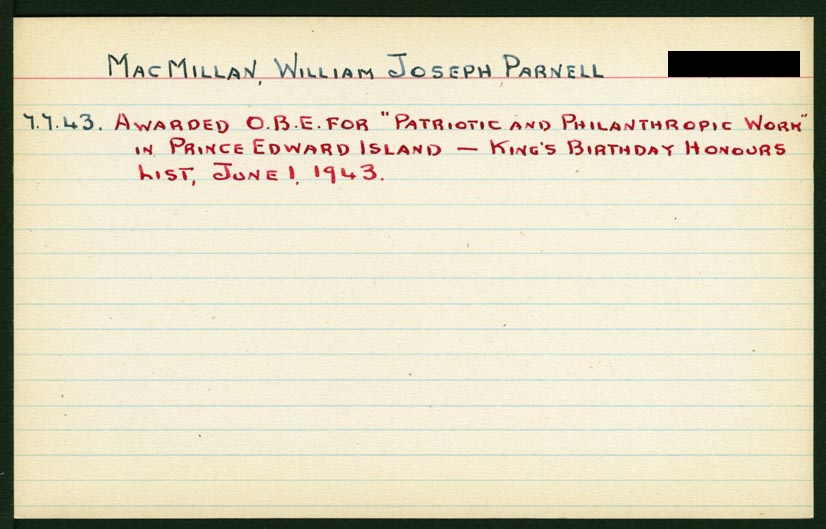 MacMillan, William Joseph Parnell
7.7.43. Awarded O.B.E. for "Patriotic and Philanthropic Work"
in Prince Edward Island — King's Birthday Honours
List, June 1, 1943.